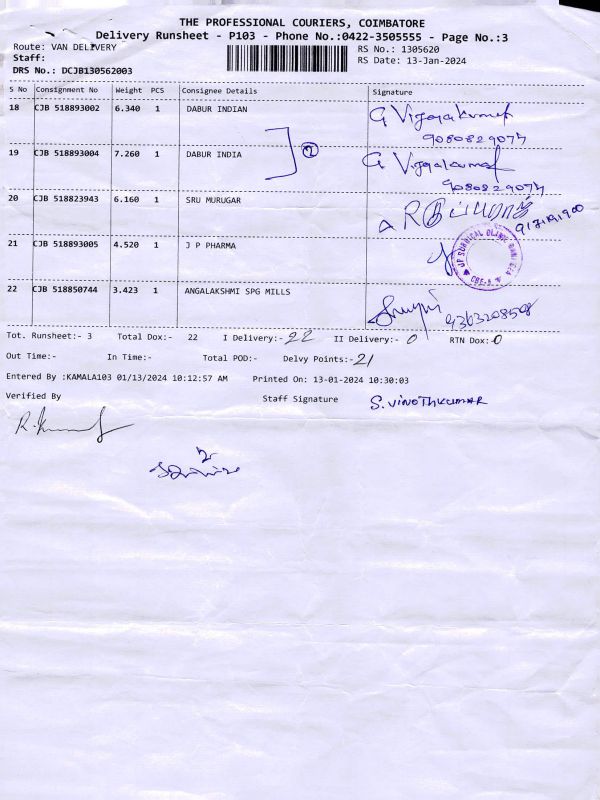 THE PROFESSIONAL COURIERS, COIMBATORE
Delivery Runsheet - P103 - Phone No.:0422-3505555 - Page No.:3
Route: VAN DELIVERY
RS No.: 1305620
Staff:
RS Date: 13-Jan-2024
DRS No.: DCJB130562003
S No Consignment No Weight PCS Consignee Details Signature
18 CJB 518893002 6.340 1 DABUR INDIAN G Vijayakumar
9080829077
19 CJB 518893004 7.260 1 DABUR INDIA 2 G Vijayakumar
9080829077
20 CJB 518823943 6.160 1 SRU MURUGAR
21 CJB 518893005 4.520 1 J P PHARMA
JP SURGICAL CLINIC
22 CJB 518850744 3.423 1 ANGALAKSHMI SPG MILLS
Tot. Runsheet:- 3 Total Dox:- 22 I Delivery:- 22 II Delivery:- 0 RTN Dox:-0
Out Time:- In Time:- Total POD:- Delvy Points:- 21
Entered By :KAMALA103 01/13/2024 10:12:57 AM Printed On: 13-01-2024 10:30:03
Verified By Staff Signature S.VINOTHKUMAR